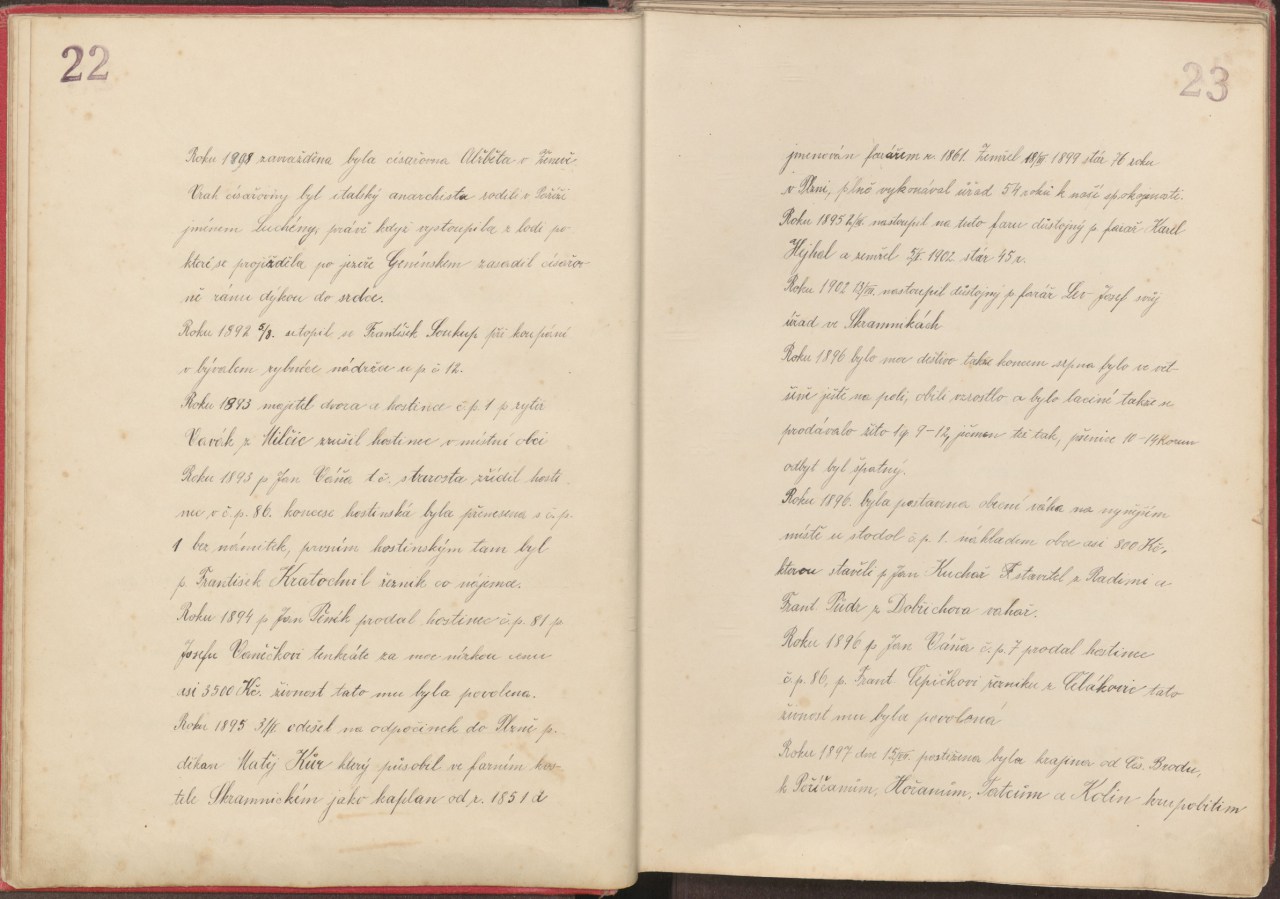 22
Roku 1898 zavražděna byla císařovna Alžběta v Ženevě
Vrah císařovny byl italský anarchista rodilý v Paříži
jménem Luchény, právě když vystoupila z lodi po
které se projížděla po jezeře Genénském zasadil císařov-
ně ránu dýkou do srdce.
Roku 1892 5/8. utopil se František Soukup při koupání
v bývalém rybníce nádržce u p č 12.
Roku 1893 majitel dvora a hostince č.p. 1 p rytíř
Vavák z Milčic zrušil hostinec v místní obci
Roku 1893 p Jan Váňa t č. starosta zřídil hosti
nec v č.p. 86. koncese hostinská byla přenesena s č.p.
1 bez námitek, prvním hostinským tam byl
p František Kratochvíl řezník co nájemce.
Roku 1894 p Jan Pěnék prodal hostinec č.p. 81 p
Josefu Vaníčkovi tenkráte za moc nízkou cenu
asi 3500 Kč. živnost tato mu byla povolena.
Roku 1895 odešel na odpočinek do Plzně p.
děkan Matěj Kůr který působil ve farním kos-
tele Skramnickém jako kaplan od r. 1851 a
23
jmenován farářem r. 1861. Zemřel 1899 stár 76 roku
v Plzni, plně vykonával úřad 54 roků k naší spokojenosti.
Roku 1895 nastoupil na tuto faru důstojný p farář Karel
Hejhal a zemřel 1902 stár 45 r.
Roku 1902 nastoupil důstojný p farář Lev Josef svůj
úřad ve Skramnikách
Roku 1896 bylo moc deštivo takže koncem srpna bylo ve vět-
šině ještě na poli, obilí vzrostlo a bylo laciné takže se
prodávalo žito 1q 9-12, ječmen též tak, pšenice 10-14 Korun
odbyt byl špatný.
Roku 1896. byla postavena obecní váha na nynějším
místě u stodol č.p. 1. nákladem obce asi 800 Kč.
kterou stavěli p Jan Kuchař stavitel z Radimi a
Frant Púdr z Dobřichova vahař.
Roku 1896 p Jan Váňa č.p. 7 prodal hostinec
č.p. 86, p. Frant Čepičkovi řezníku z Čelákovic tato
živnost mu byla povolená
Roku 1897 dne postižena byla krajina od Čes. Brodu,
k Poříčanům, Hořanům, Tatcům a Kolín krupobitím